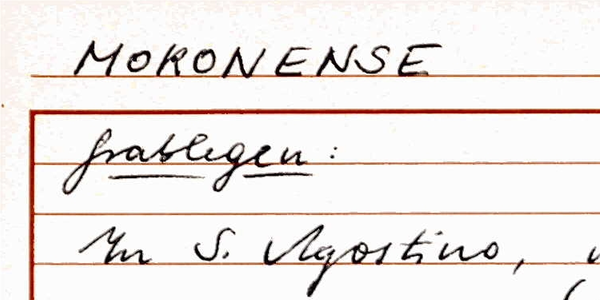 MORONENSE
Grablegen:
In S. Agostino,